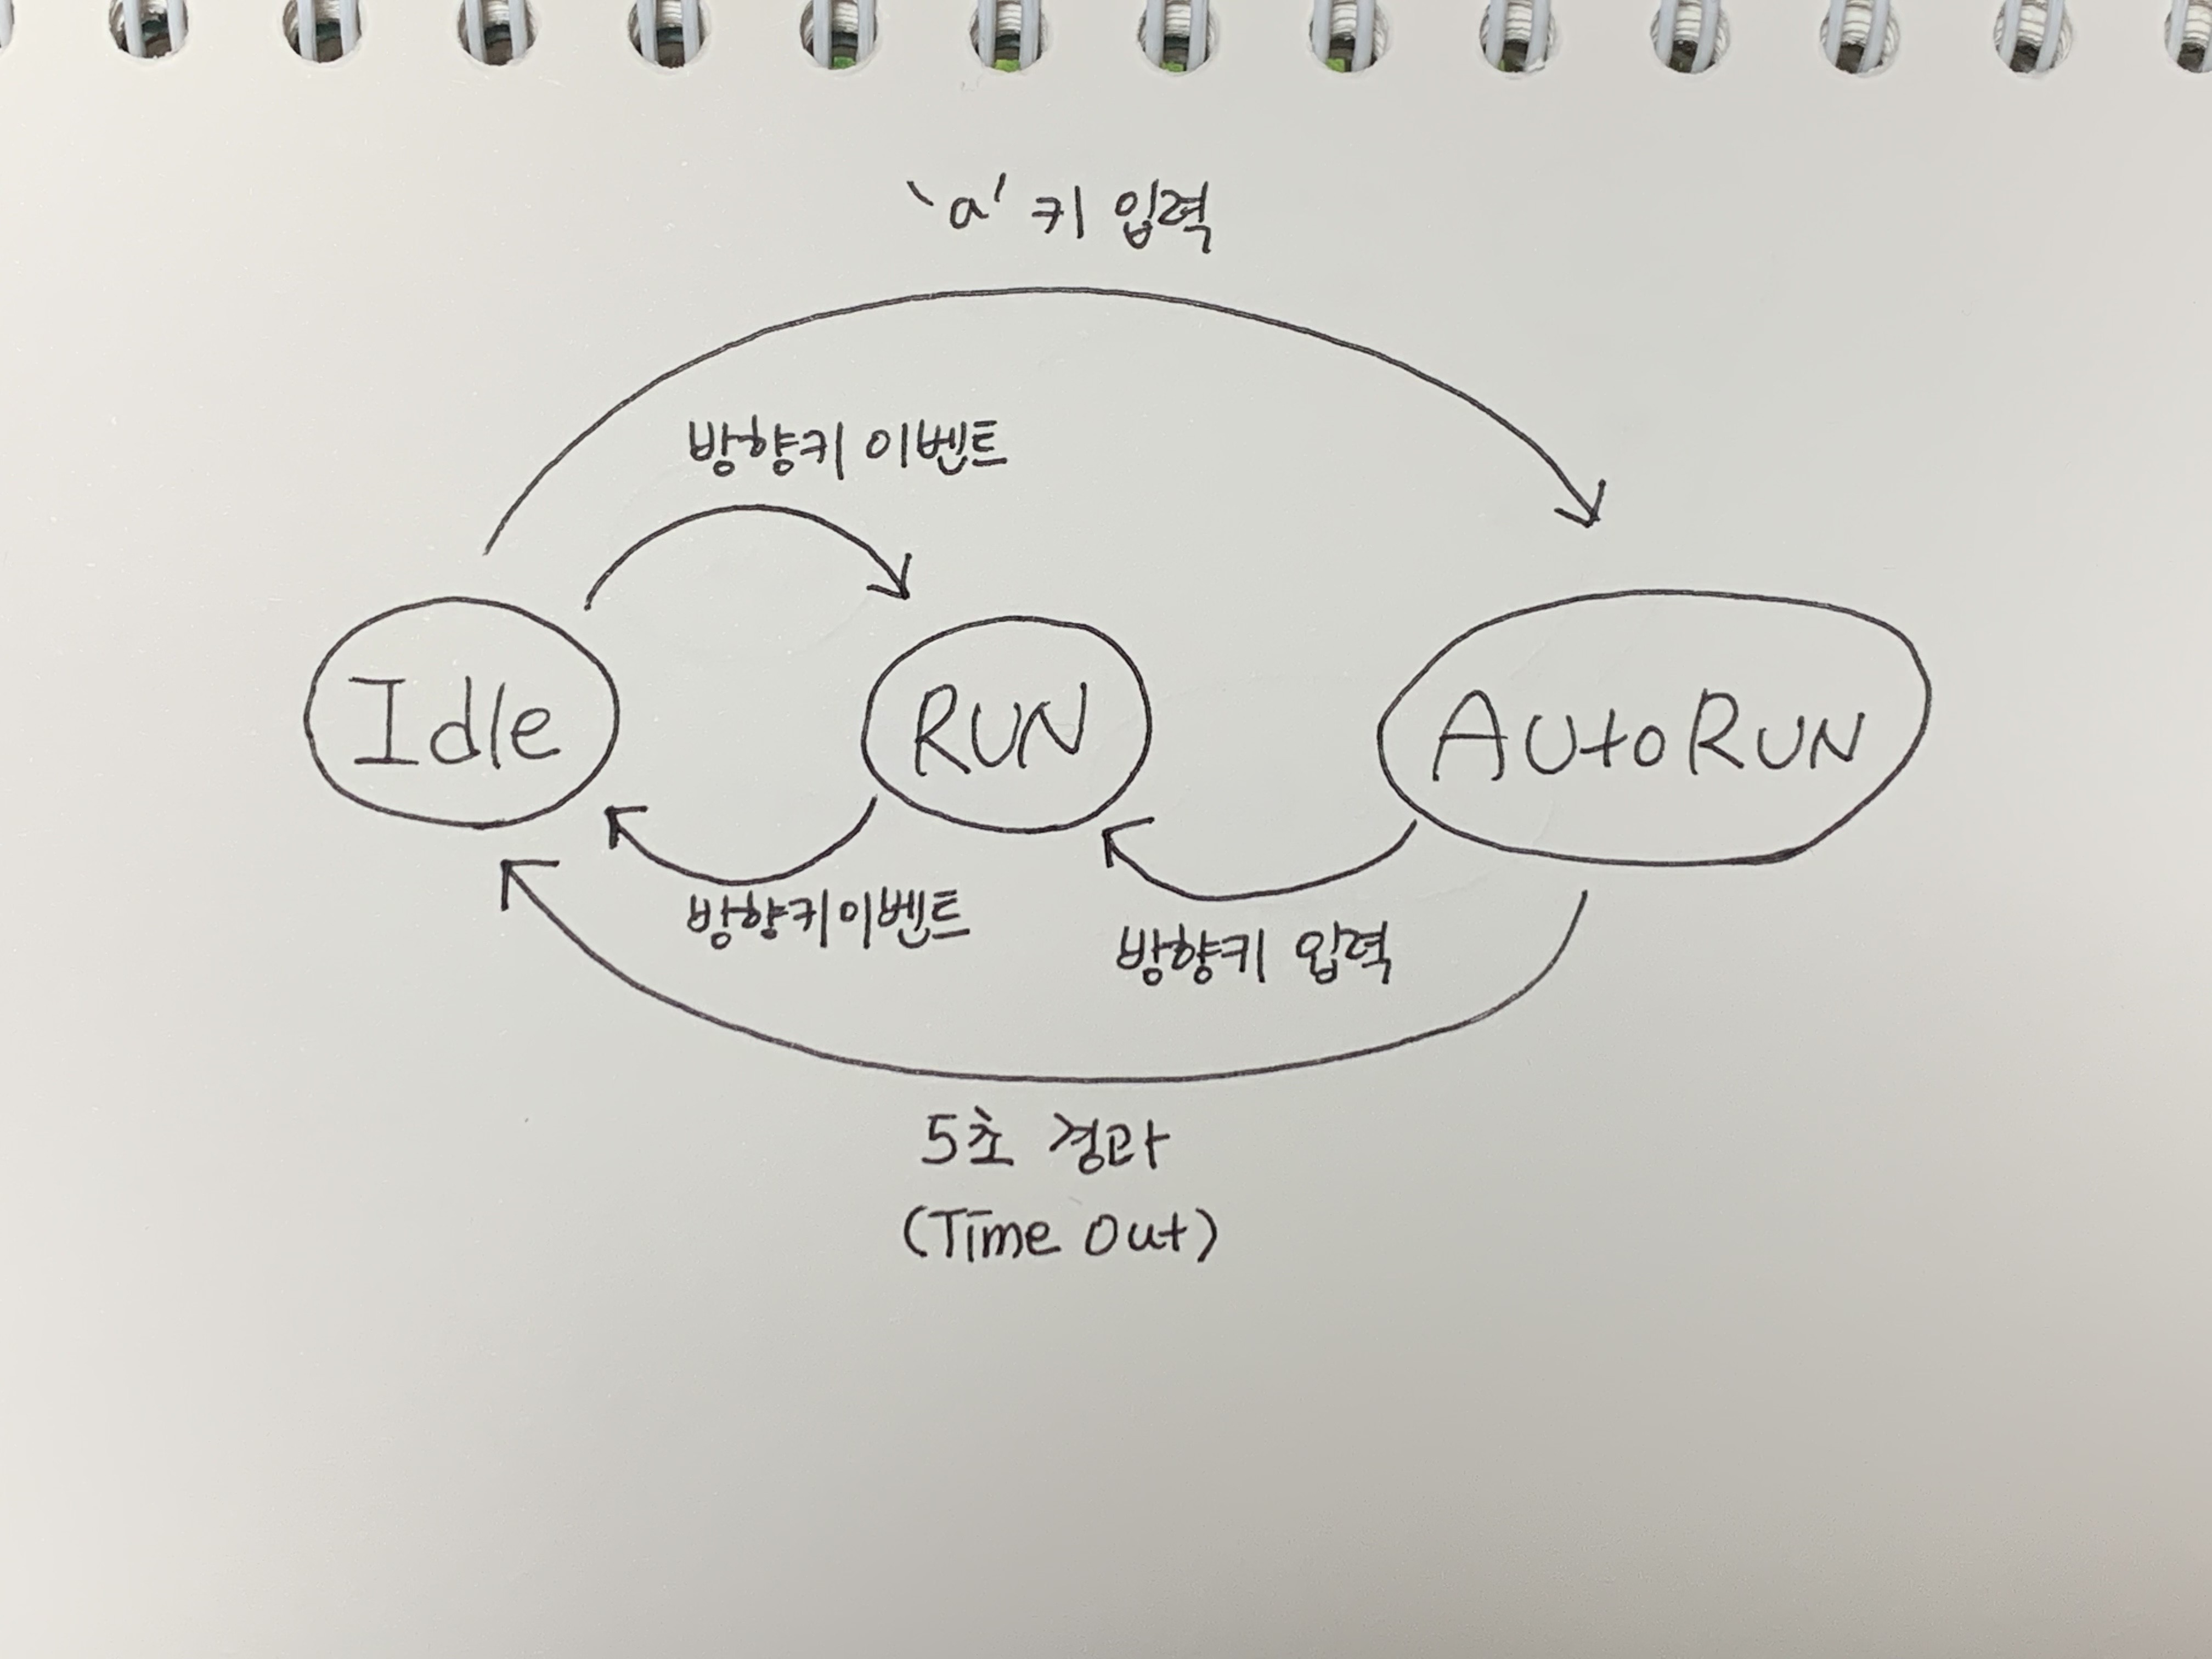 'a' 키 입력
방향키 이벤트
Idle
RUN
AUtoRUN
방향키이벤트
방향키 입력
5초 경과
(Time Out)